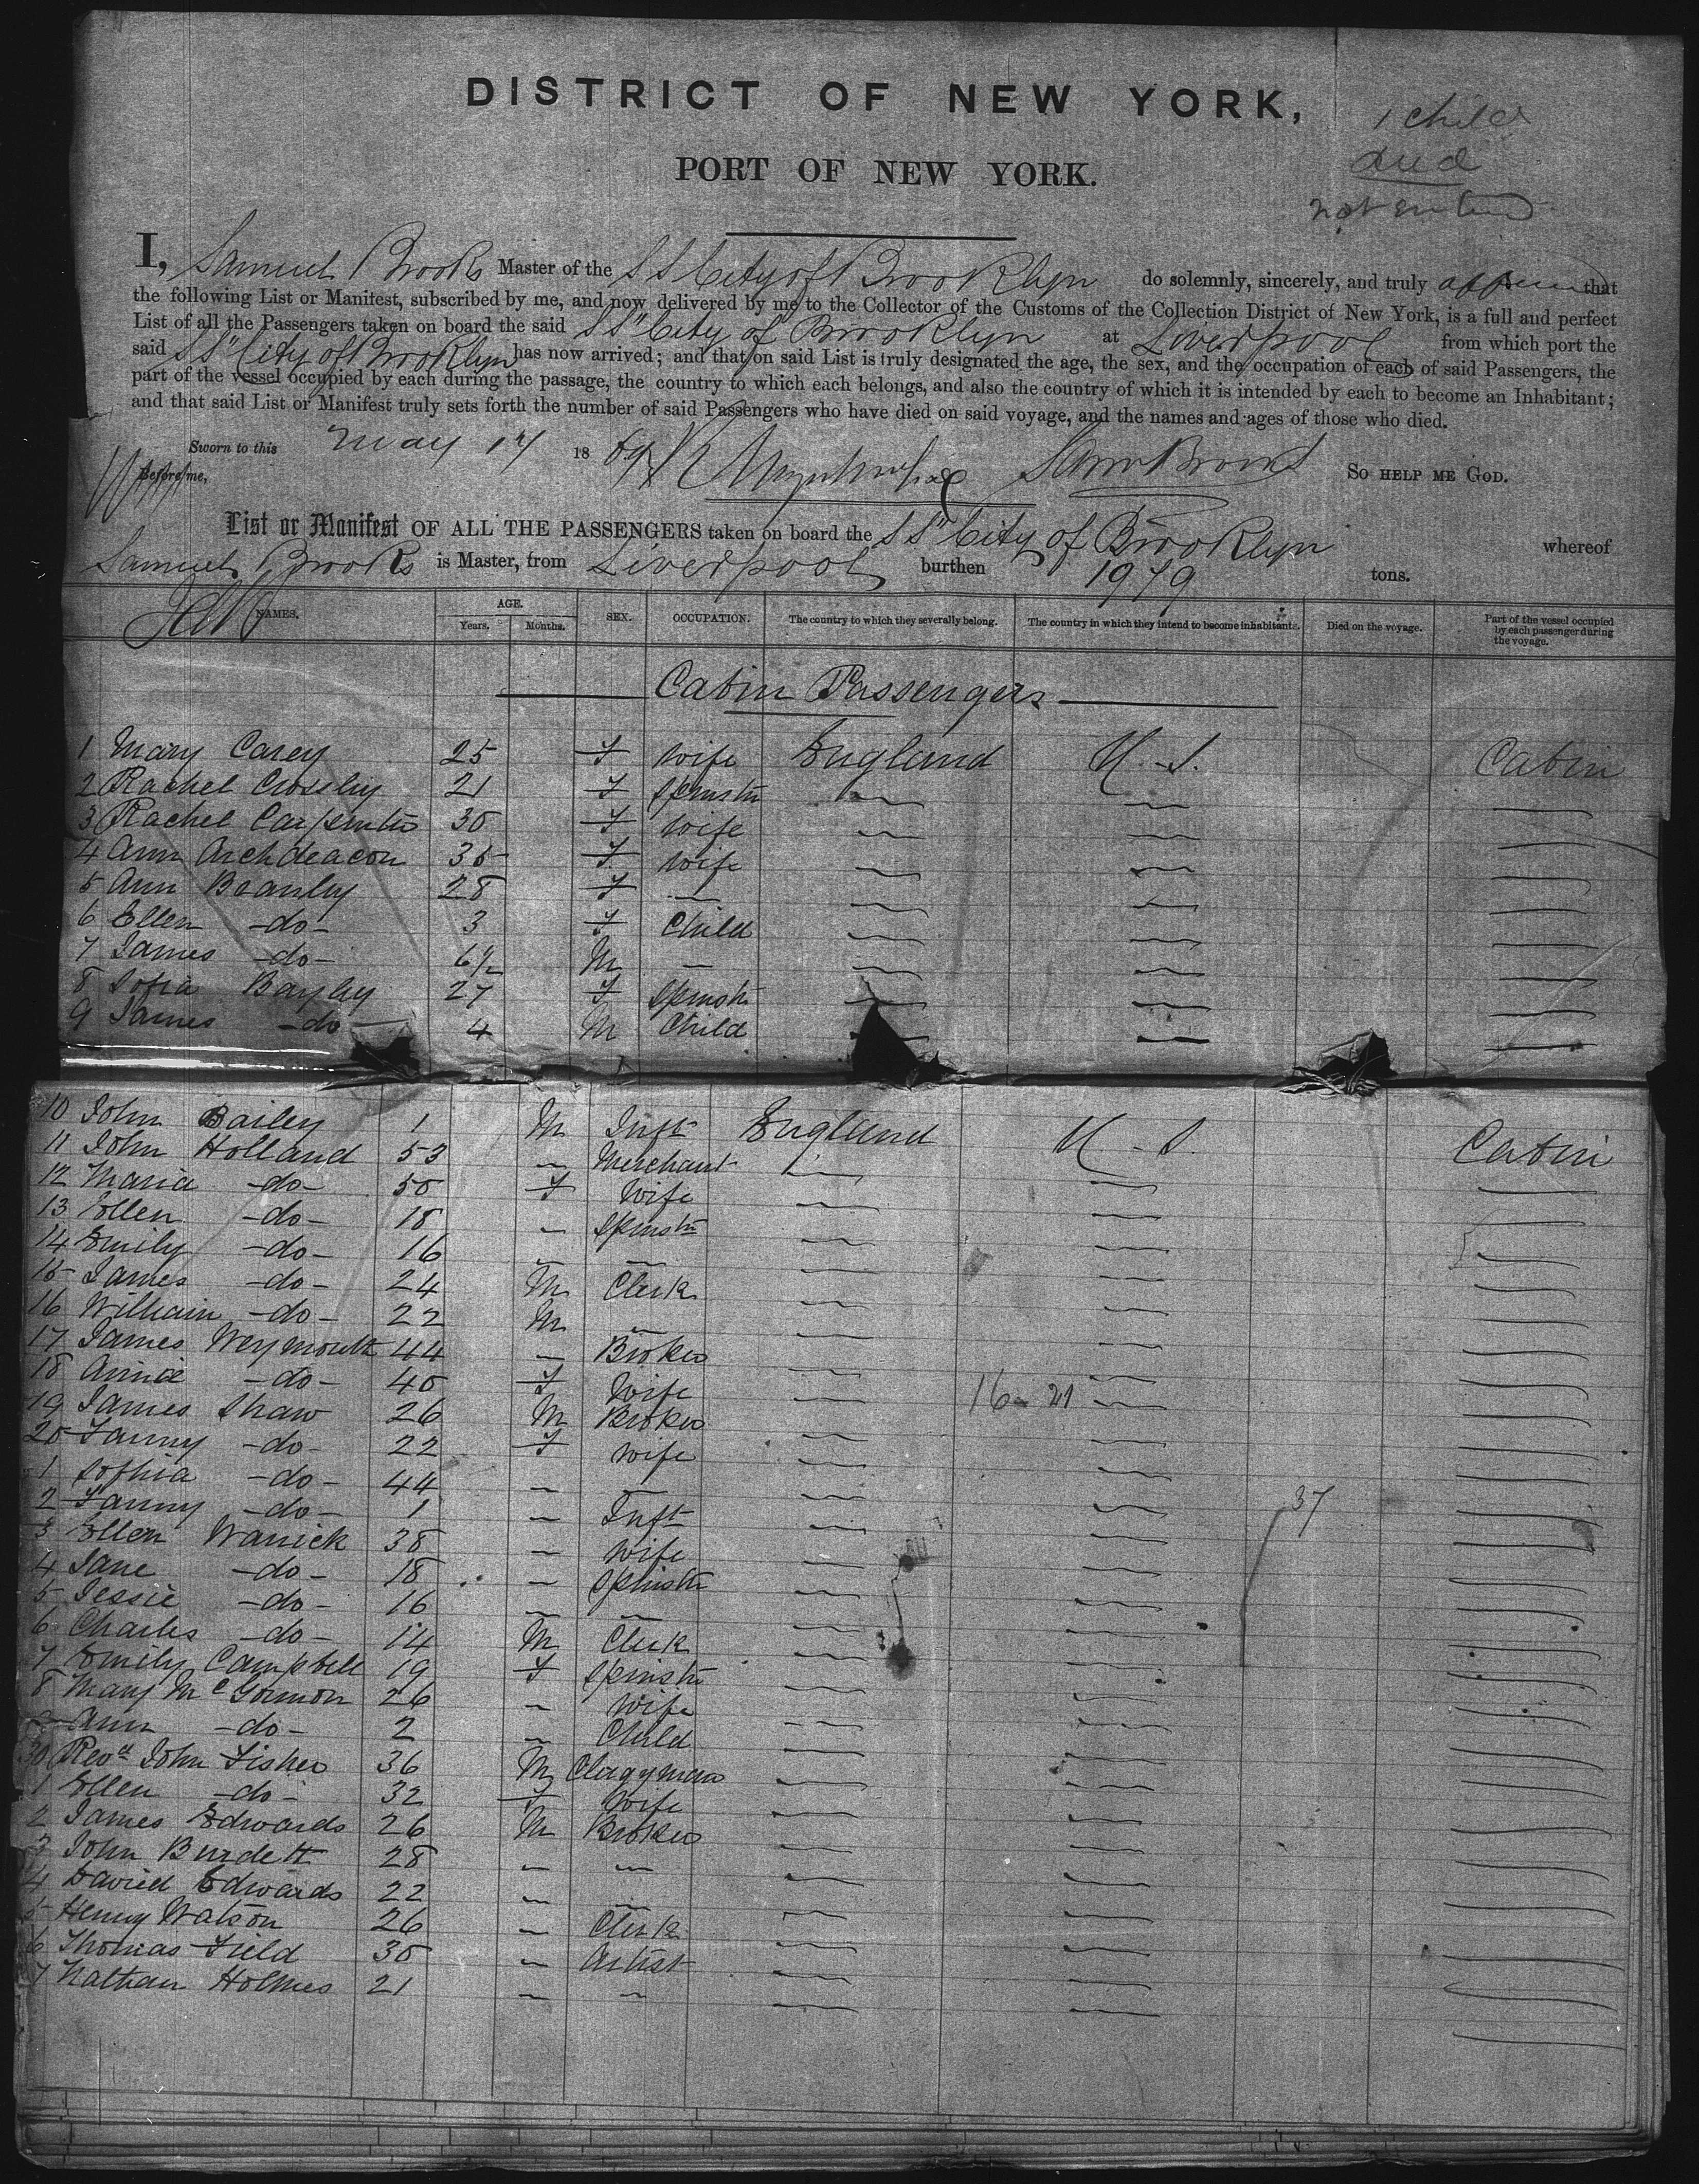 DISTRICT OF NEW YORK,
1 child
died
not
PORT OF NEW YORK.
I, Samuel Brooks Master of the SS City of Brooklyn do solemnly, sincerely, and truly affirm that
the following List or Manifest, subscribed by me, and now delivered by me to the Collector of the Customs of the Collection District of New York, is a full and perfect
List of all the Passengers taken on board the said SS "City of Brooklyn at Liverpool from which port the
said SS "City of Brooklyn has now arrived; and that on said List is truly designated the age, the sex, and the occupation of each of said Passengers, the
part of the vessel occupied by each during the passage, the country to which each belongs, and also the country of which it is intended by each to become an Inhabitant;
and that said List or Manifest truly sets forth the number of said Passengers who have died on said voyage, and the names and ages of those who died.
Sworn to this May 17 1869 Saml Brooks So HELP ME GOD.
Before me,
List or Manifest OF ALL THE PASSENGERS taken on board the SS "City of Brooklyn whereof
Samuel Brooks is Master, from Liverpool burthen 1979 tons.
NAMES. AGE. Years. Months. SEX. OCCUPATION. The country to which they severally belong. The country in which they intend to become inhabitants. Died on the voyage. Part of the vessel occupied by each passenger during the voyage.
Cabin Passengers
1 Mary Carey 25 F Wife England U.S. Cabin
2 Rachel Crossley 21 F Spinstr
3 Rachel Carpenter 30 F Wife
4 Ann Archdeacon 35 F Wife
5 Ann Beanley 28 F —
6 Ellen -do- 3 F Child
7 James -do- 6½ M —
8 Sofia Bayley 27 F Spinstr
9 James -do- 4 M Child
10 John Bailey 1 M Inft England U.S. Cabin
11 John Holland 53 — Merchant
12 Maria -do- 50 F Wife
13 Ellen -do- 18 — Spinstr
14 Emily -do- 16 — —
15 James -do- 24 M Clerk
16 William -do- 22 M —
17 James Weymouth 44 — Broker
18 Annie -do- 40 F Wife
19 James Shaw 26 M Broker 16-21
20 Fanny -do- 22 F Wife
1 Sophia -do- 44 — —
2 Fanny -do- 1 — Inft 37
3 Ellen Warrick 38 — Wife
4 Jane -do- 18 — Spinstr
5 Jessie -do- 16 — —
6 Charles -do- 14 M Clerk
7 Emily Campbell 19 F Spinstr
8 Mary McGormon 26 — Wife
9 Ann -do- 2 — Child
30 Revd John Fisher 36 M Clergyman
1 Ellen -do- 32 F Wife
2 James Edwards 26 M Broker
3 John Burdett 28 — —
4 David Edwards 22 — —
5 Henry Watson 26 — Clerk
6 Thomas Field 30 — Artist
7 Nathan Holmes 21 — —